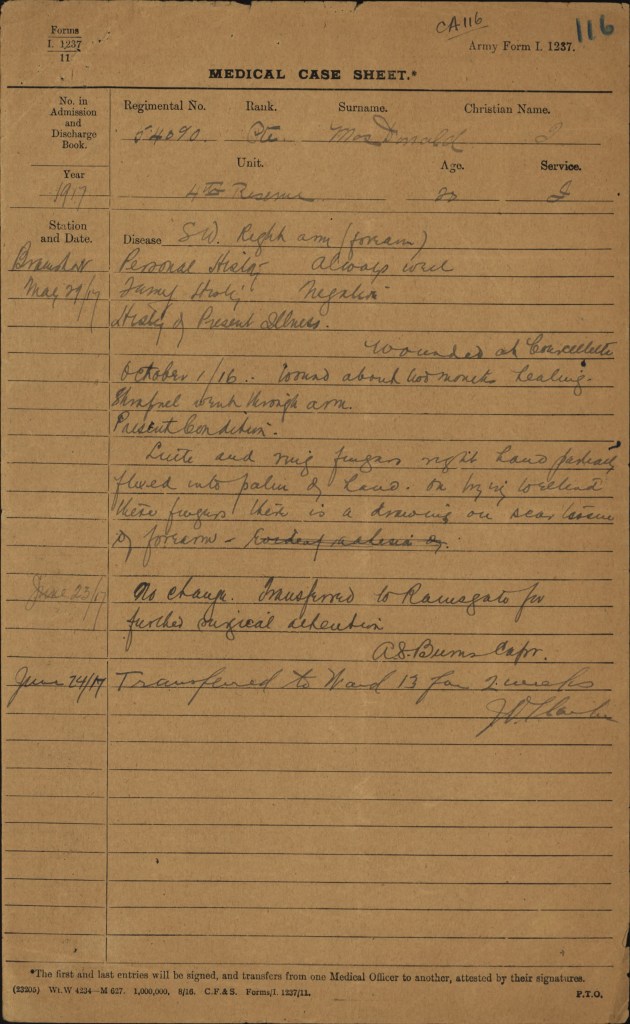 Forms
I. 1237
11
CA116
116
Army Form I. 1237.
MEDICAL CASE SHEET.*
No. in
Admission
and
Discharge
Book.
Regimental No. Rank. Surname. Christian Name.
54090. Pte. MacDonald J
Unit. Age. Service.
Year
1917
4th Reserve
Station
and Date.
Disease SW. Right arm (forearm)
Bramshott
Personal History Always well
May 29/17
Family History Negative
History of Present Illness.
Wounded at Courcellette
October 1/16. Wound about two months healing.
Shrapnel went through arm.
Present Condition.
Little and ring fingers right hand partially
flexed into palm of hand. On trying to extend
these fingers there is a drawing on scar tissue
of forearm -
June 23/17
No change. Transferred to Ramsgate for
further surgical attention
A.S. Burns Capt.
June 24/17 Transferred to Ward 13 for 2 weeks
*The first and last entries will be signed, and transfers from one Medical Officer to another, attested by their signatures.
(23205) Wt.W 4234—M 627. 1,000,000. 8/16. C.F.& S. Forms/I. 1237/11.
P.T.O.